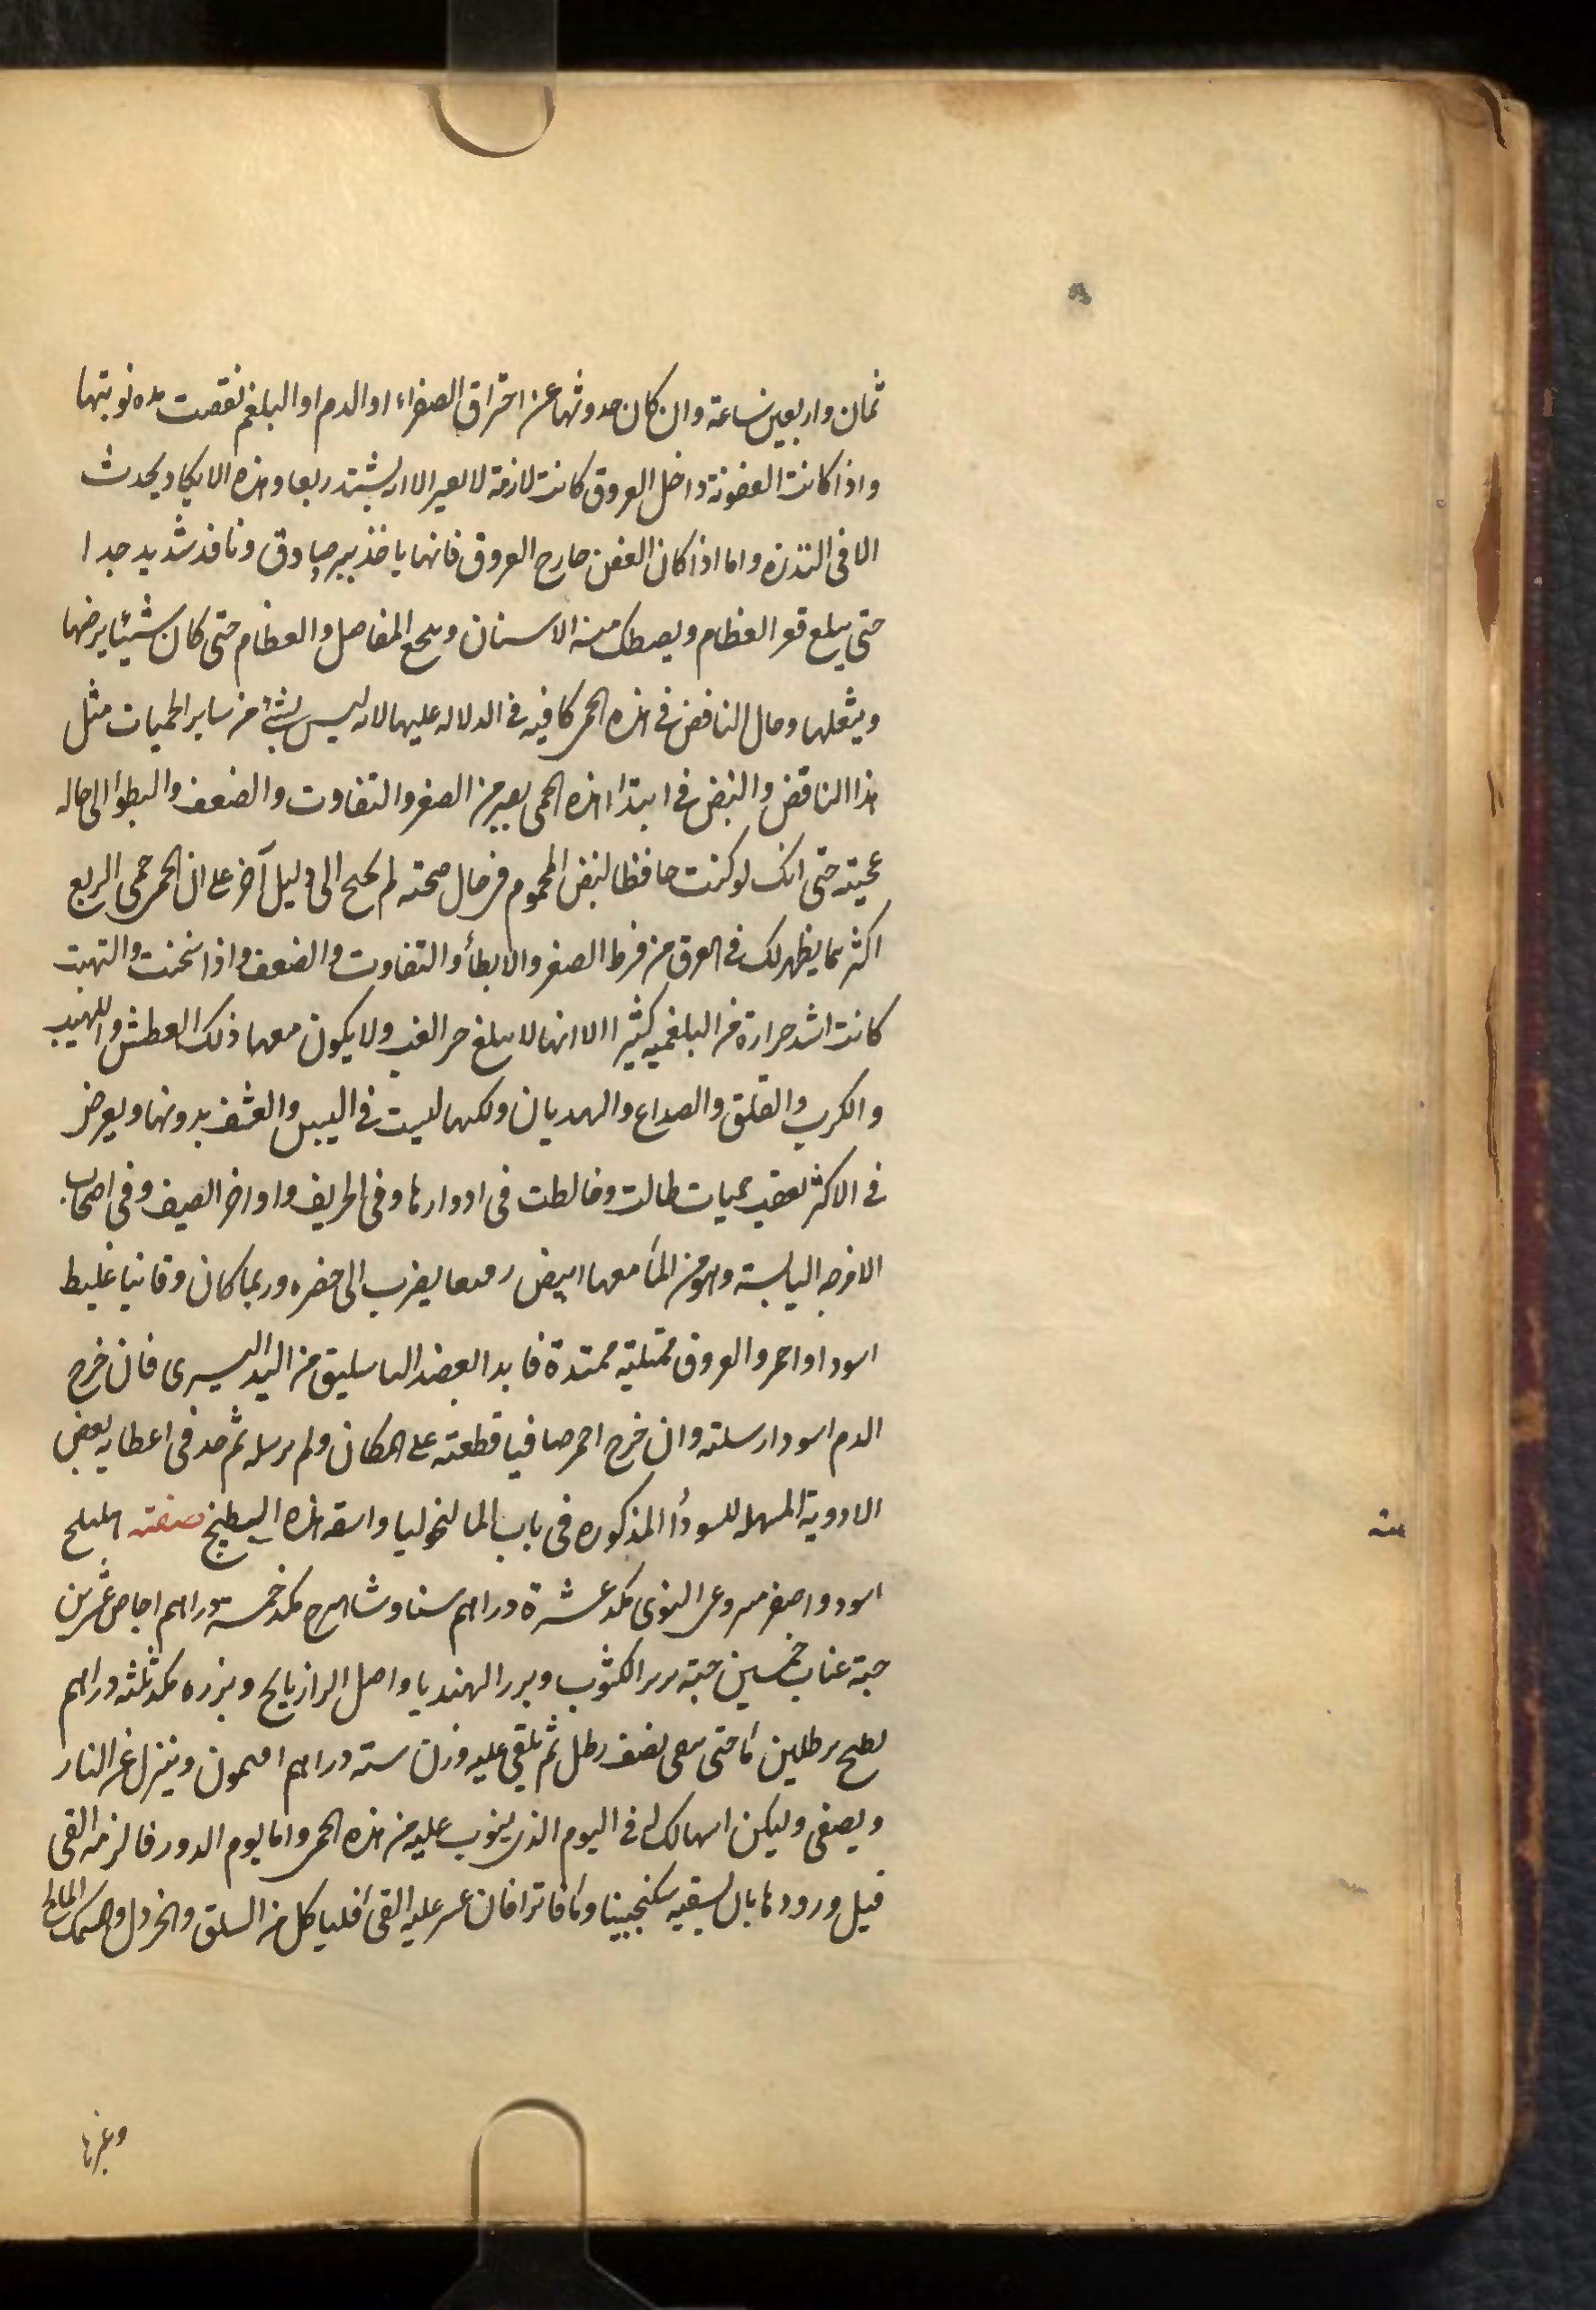 ثمان واربعين ساعة وان كان حدوثها عن احتراق الصفراء او الدم او البلغم نقصت مده نوبتها
واذا كانت العفونة داخل العروق كانت لازمة لا تغير الا ان يشتد ربعا وهذه لا يكاد يحدث
الا فى الندره واما اذا كان العفن خارج العروق فانها ياخذ ببرد صادق ونافد شديد جدا
حتى يبلغ قعر العظام ويصطك منه الاسنان ويوجع المفاصل والعظام حتى كان شيئا يرضها
ويثقلها وحال النافض فى هذه الحمى كافيه فى الدلاله عليها لانه ليس لشئ من ساير الحميات مثل
هذا الناقض والنبض فى ابتدا هذه الحمى يصير من الصغر والتفاوت والضعف والبطؤ الى حاله
عجيبه حتى انك لو كنت حافظا لنبض المحموم فى حال صحته لم تحتج الى دليل آخر على ان الحمى حمى الربع
اكثر مما يظهر لك فى العرق من فرط الصغر والابطأ والتفاوت والضعف واذا سخنت والتهبت
كانت اشد حرارة من البلغميه كثيرا الا انها لا يبلغ حر الغب ولا يكون معها ذلك العطش واللهيب
والكرب والقلق والصداع والهديان ولكنها ليست فى اليبس والقشف بدونها ويعرض
فى الاكثر بعقب حميات طالت وخالطت فى ادوارها وفى الخريف واواخر الصيف وفى اصحاب
الامزجه اليابسة وهو من المأ معها ابيض رقيقا يضرب الى خضره وربما كان وقانيا غليظ
اسود او احمر والعروق ممتليه ممتدة فابدا بفصد الباسليق من اليد اليسرى فان خرج
الدم اسود ارسلته وان خرج احمر صافيا قطعته على المكان ولم ترسله ثم خذ فى اعطايه بعض
الادوية المسهله للسودأ المذكوره فى باب المالنخوليا واسقه هذه الطبيخ صفته اهليلج
اسود واصفر منزوعى النوى مكد عشرة دراهم سنا وشاهترج مكد خمسة دراهم اجاص عشرين
حبة عناب خمسين حبة بزر الكشوث وبزر الهندبا واصل الرازيانج وبزره مكد ثلثه دراهم
يطبخ برطلين مأ حتى يبقى نصف رطل ثم يلقى عليه وزن سته دراهم افيمون وينزل عن النار
ويصفى وليكن اسهالك له فى اليوم الذى ينوب عليه من هذه الحمى واما يوم الدور فالزمه القى
قبل ورودها بان يسقيه سكنجبينا ومأ فاترا فان عسر عليه القى فلياكل من السلق والخردل والسمك المالح
وغيرها
منه